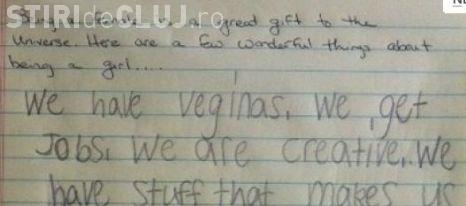 STIRIdeCLUJ.ro
Being a female is a great gift to the
Universe. Here are a few wonderful things about
being a girl....
We have veginas. We get
Jobs. We are creative. We
have stuff that makes us